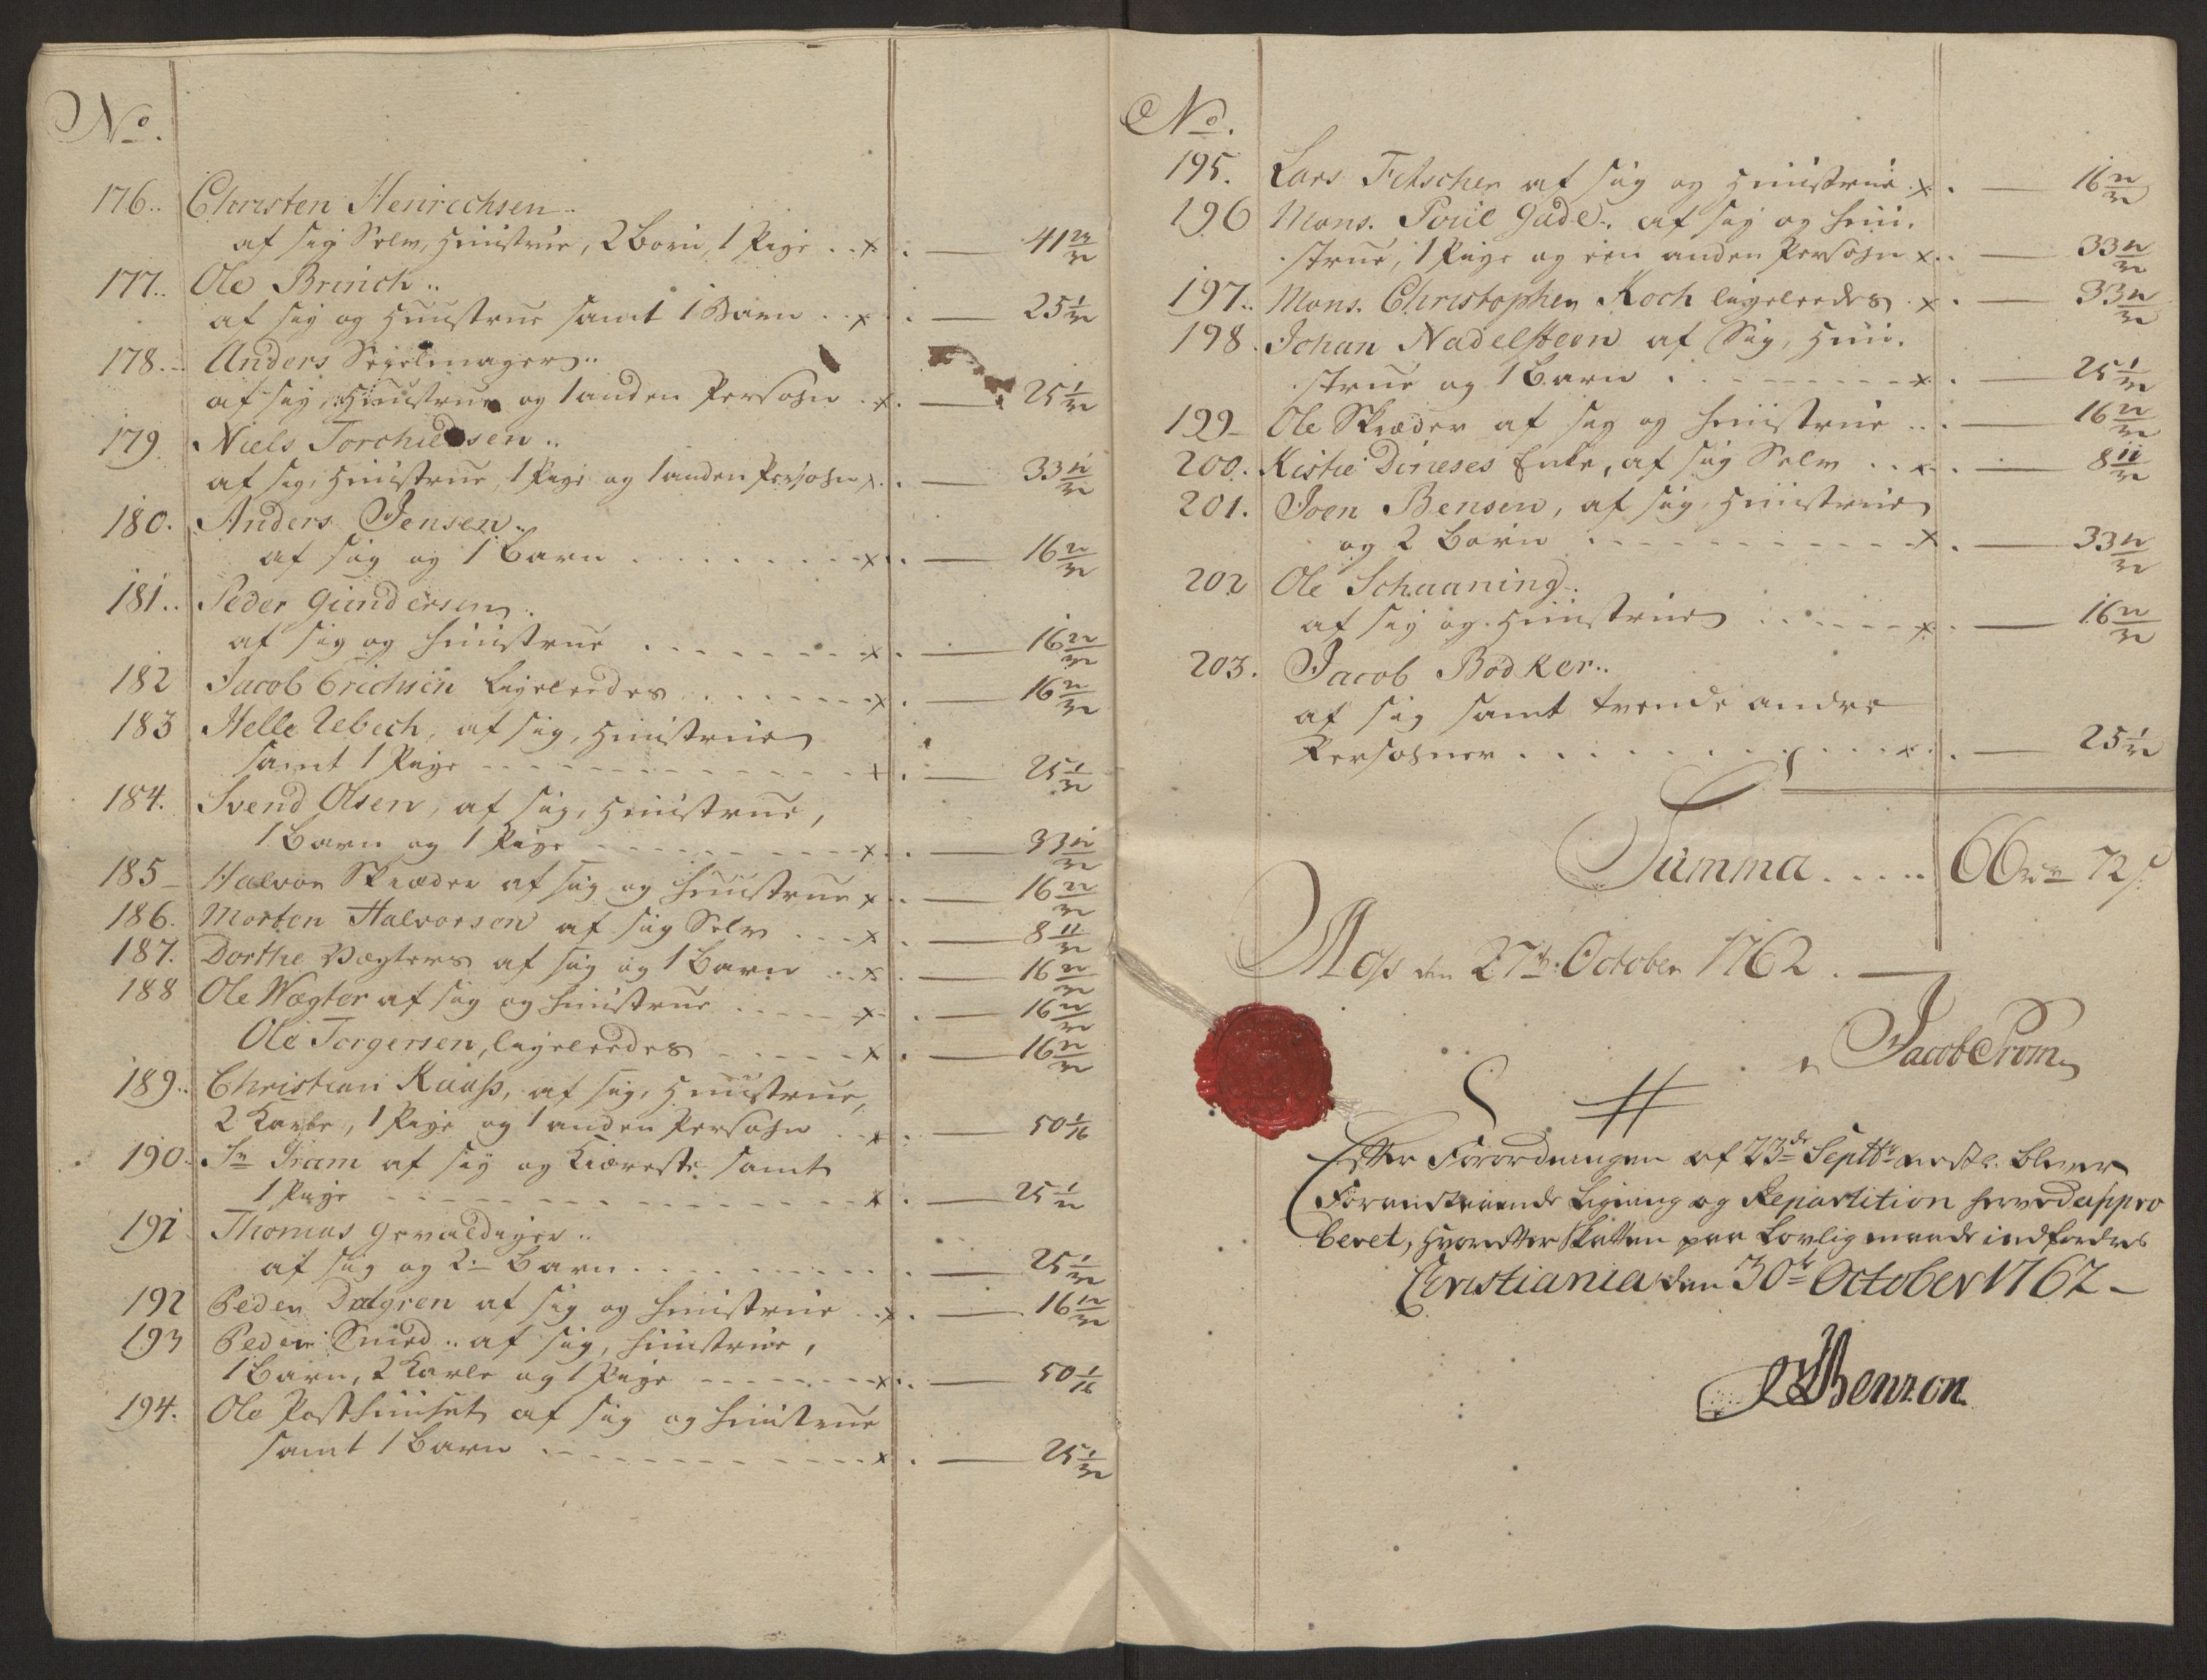 No.
176.. Christen Henrichsen..
af sig Selv, Hustrue, 2 Børn, 1 Pige . . x . — 41 23/32
177.. Ole Brinch..
af sig og Hustrue samt 1 Barn . . x . — 25 1/32
178.. Anders Seyelmager..
af sig, Hustrue og 1 anden Persohn . x . — 25 1/32
179. Niels Torchildsen..
af sig, Hustrue, 1 Pige og 1 anden Persohn x . — 33 12/32
180. Anders Jensen..
af sig og 1 Barn . . . . . . . x . — 16 22/32
181.. Peder Gundersen..
af sig og Hustrue . . . . . . . x . — 16 22/32
182 Jacob Erichsen ligeleedes . . . . . . x . — 16 22/32
183 Helle Uebech, af sig, Hustrue
samt 1 Pige - - - - - - - - - - x . — 25 1/32
184. Svend Olsen, af sig, Hustrue,
1 Barn og 1 Pige - - - - - - - - x . — 33 12/32
185 - Halvor Skræder af sig og Hustrue x . — 16 22/32
186. Morten Halvorsen af sig Selv . . . x . — 8 11/32
187. Dorthe Vægters af sig og 1 Barn . . x . — 16 22/32
188 Ole Wægter af sig og Hustrue . . . . . x . — 16 22/32
Ole Torgersen, ligeleedes - - - - - x . — 16 22/32
189.. Christian , af sig, Hustrue,
2 Karle, 1 Pige og 1 anden Persohn . . x . — 50 1/16
190. Sr. Fram af sig og Kiæreste samt
1 Pige - - - - - - - - - - - - x . — 25 1/32
191 Thomas Gevaldiger..
af sig og 2de Barn . . . . . . . . . . — 25 1/32
192 Peder Dalgren af sig og Hustrue . . x . — 16 22/32
193 Peder Smed.. af sig, Hustrue,
1 Barn, 2 Karle og 1 Pige - - - - - - - x . — 50 1/16
194. Ole af sig og Hustrue
samt 1 Barn . - - - - - - - - - - - x . — 25 1/32
No.
195. Lars Fetscher af sig og Hustrue . x . — 16 22/32
196 Mons. Poul Gude.. af sig og Hu-
strue, 1 Pige og een anden Persohn x . . — 33 12/32
197.. Mons. Christopher Koch ligeleedes . x . — 33 12/32
198. Johan Nadelsteen af Sig, Hu-
strue og 1 Barn . . - - - - - - - x . — 25 1/32
199 - Ole Skræder af sig og Hustrue . . . — 16 22/32
200. Kistie Dineses Enke, af sig Selv . . x . — 8 11/32
201. Joen Bensen, af sig, Hustrue
og 2 Børn - - - - - - - - - - - x . — 33 12/32
202 Ole Schaaning..
af sig og Hustrue . . - - - - x . — 16 22/32
203. Jacob Bødker..
af sig samt trende andre
Persohner . . . . . . . . . . . x . — 25 1/32
Summa . . . . . 66 rdr 72 s
Moss den 27de October 1762. —
Jacob Crom
Efter Forordningen af 23de Septbr blever
Foranstaaende Ligning og Repartition herved appro
beret, hvorefter Skatten paa Lovlig maade indfordres
Christiania den 30te October 1762 -
Benzon